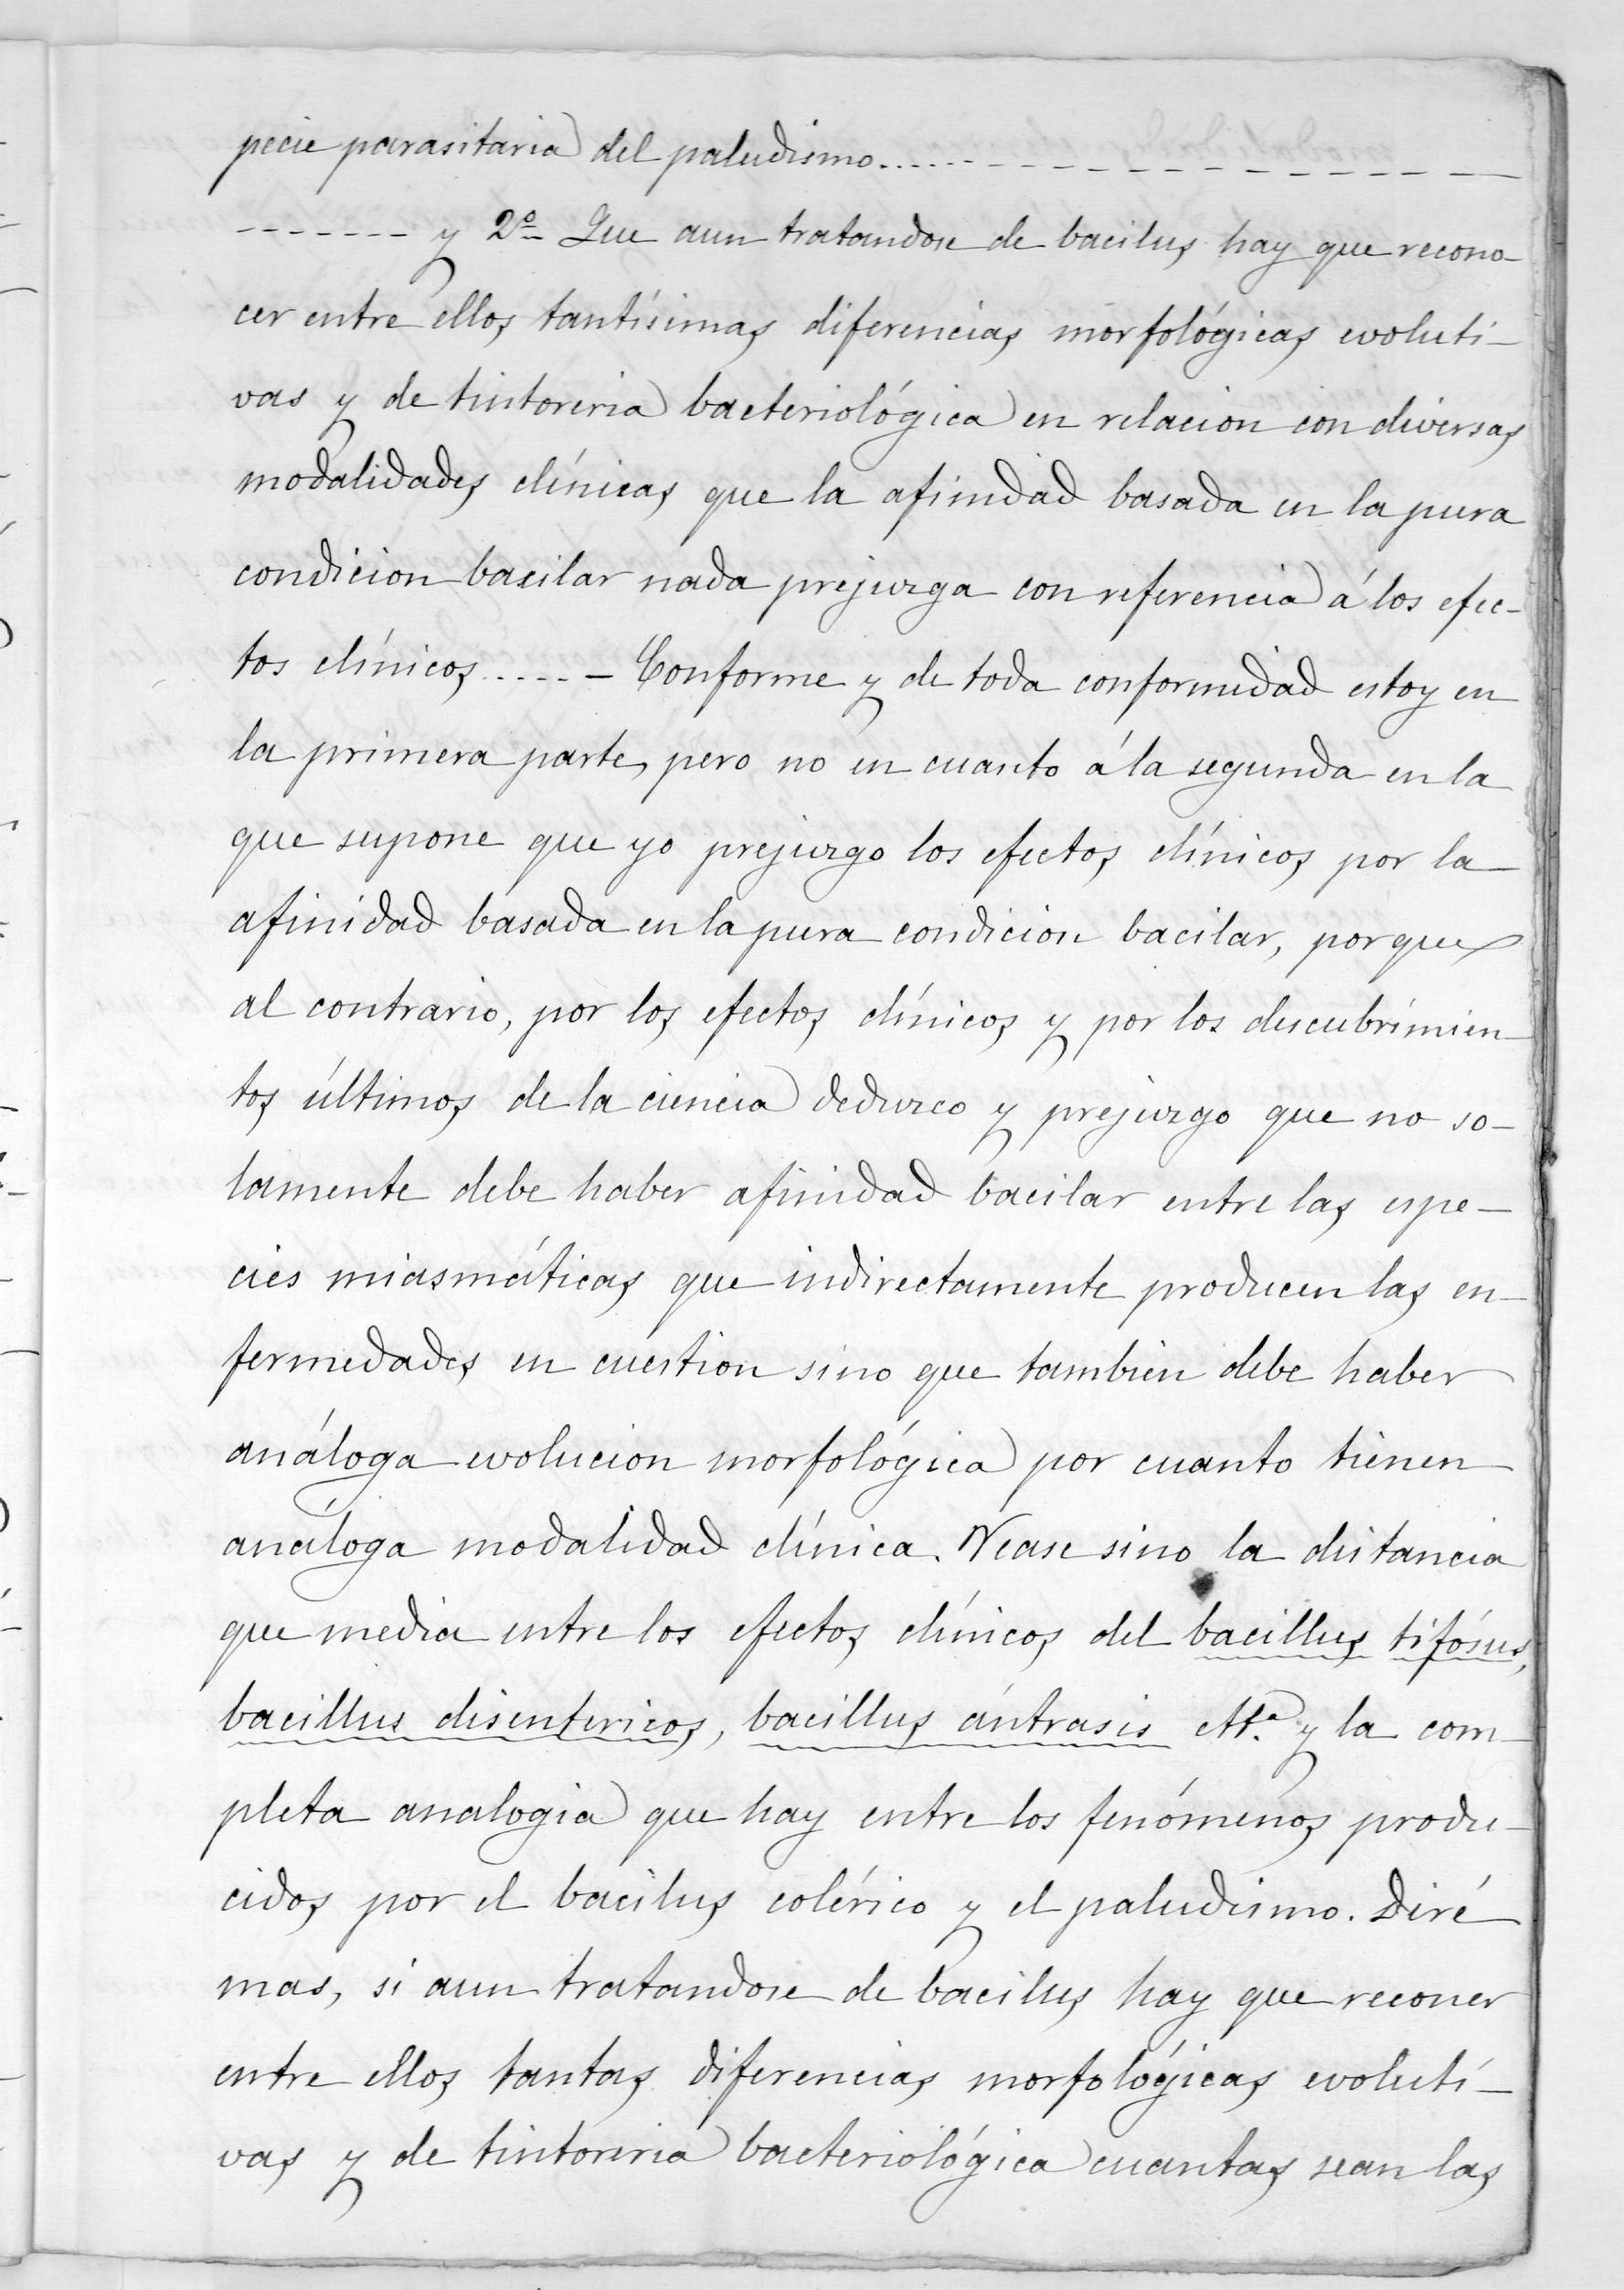 pecie parasitaria del paludismo......– – – – – – – – – – – – – –
– – – – – – – y 2º Que aun tratandose de bacilus hay que recono-
cer entre ellos tantísimas diferencias morfológicas evoluti-
vas y de tintoreria bacteriológica en relacion con diversas
modalidades clínicas que la afinidad basada en la pura
condicion bacilar nada prejuzga con referencia á los efec-
tos clínicos..... – Conforme y de toda conformidad estoy en
la primera parte, pero no en cuanto á la segunda en la
que supone que yo prejuzgo los efectos clínicos por la
afinidad basada en la pura condicion bacilar, porque
al contrario, por los efectos clínicos y por los descubrimien-
tos últimos de la ciencia deduzco y prejuzgo que no so-
lamente debe haber afinidad bacilar entre las espe-
cies miasmáticas que indirectamente producen las en-
fermedades en cuestion sino que tambien debe haber
análoga evolucion morfológica por cuanto tienen
análoga modalidad clínica. Vease sino la distancia
que media entre los efectos clínicos del bacillus tifósus,
bacillus disentericos, bacillus ántrasis ettª. y la com-
pleta analogia que hay entre los fenómenos produ-
cidos por el bacilus colérico y el paludismo. Diré
mas, si aun tratandose de bacilus hay que reconer
entre ellos tantas diferencias morfológicas evoluti-
vas y de tintoreria bacteriológica cuantas sean las